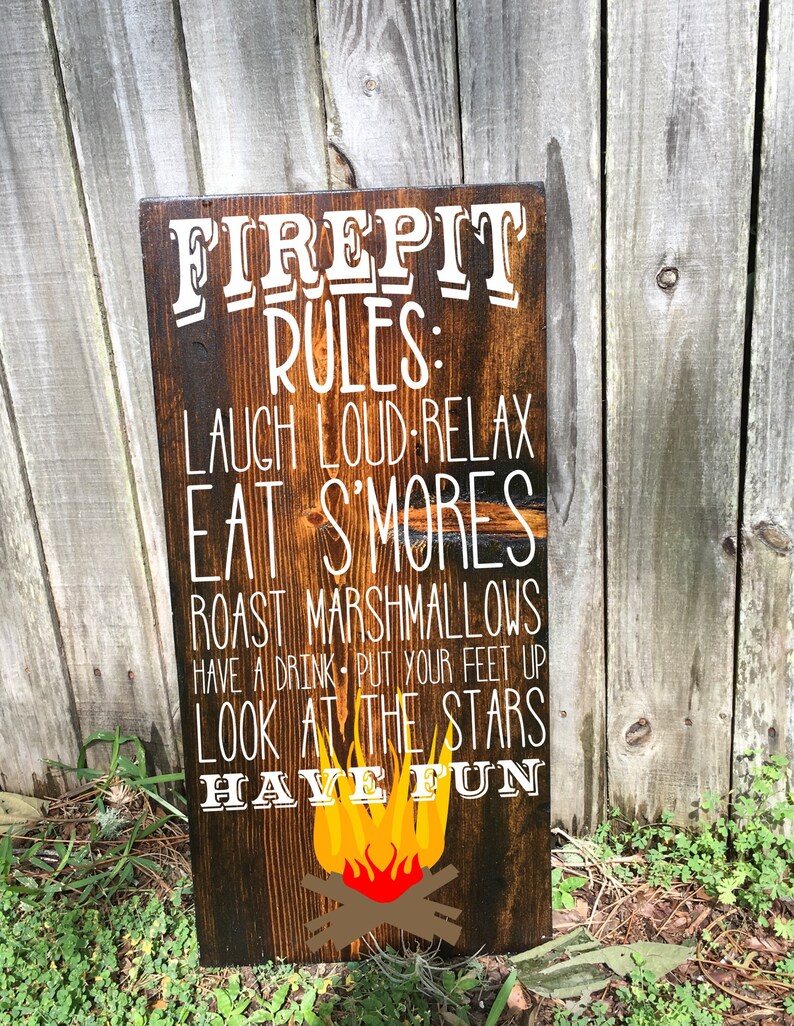 FIREPIT
RULES:
LAUGH LOUD·RELAX
EAT S'MORES
ROAST MARSHMALLOWS
HAVE A DRINK·PUT YOUR FEET UP
LOOK AT THE STARS
HAVE FUN